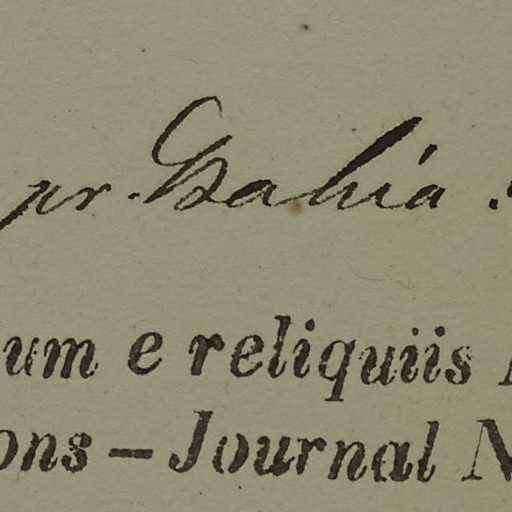 pr. Bahia.
um e reliquiis
ons – Journal N